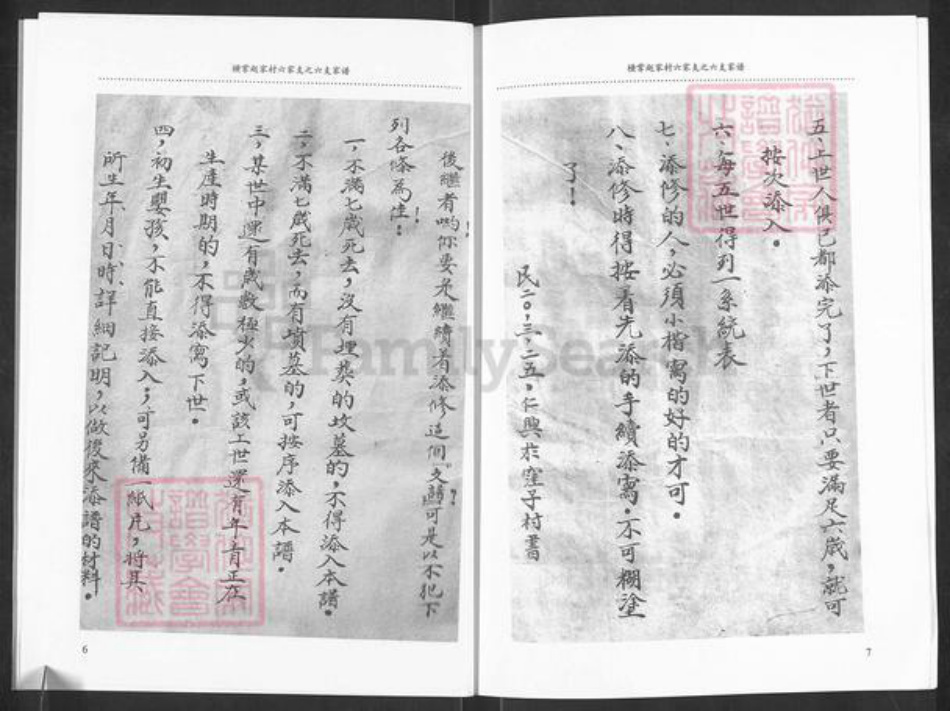 横掌赵家村六家支之六支家谱
後繼者喲！你要是繼續着添修這個文譜？可是以不犯下
列各條為佳！：
一，不滿七歲死去，沒有埋葬的坟墓的，不得添入本譜。
二，不滿七歲死去，而有墳墓的，可按序添入本譜。
三，某世中還有歲數極少的，或該上世還有年青正在
生產時期的，不得添寫下世。
四，初生嬰孩，不能直接添入，可另備一紙片，將其
所生年、月、日、時，詳細記明，以做後來添譜的材料。
6
横掌赵家村六家支之六支家谱
五、上世人俱已都添完了，下世者只要滿足六歲，就可
按次添入。
六、每五世得列一系統表
七、添修的人，必須小楷寫的好的才可。
八、添修時得按着先添的手續添寫。不可糊塗
了！
民二〇，三，二五，仁興於窪子村書
7
FamilySearch